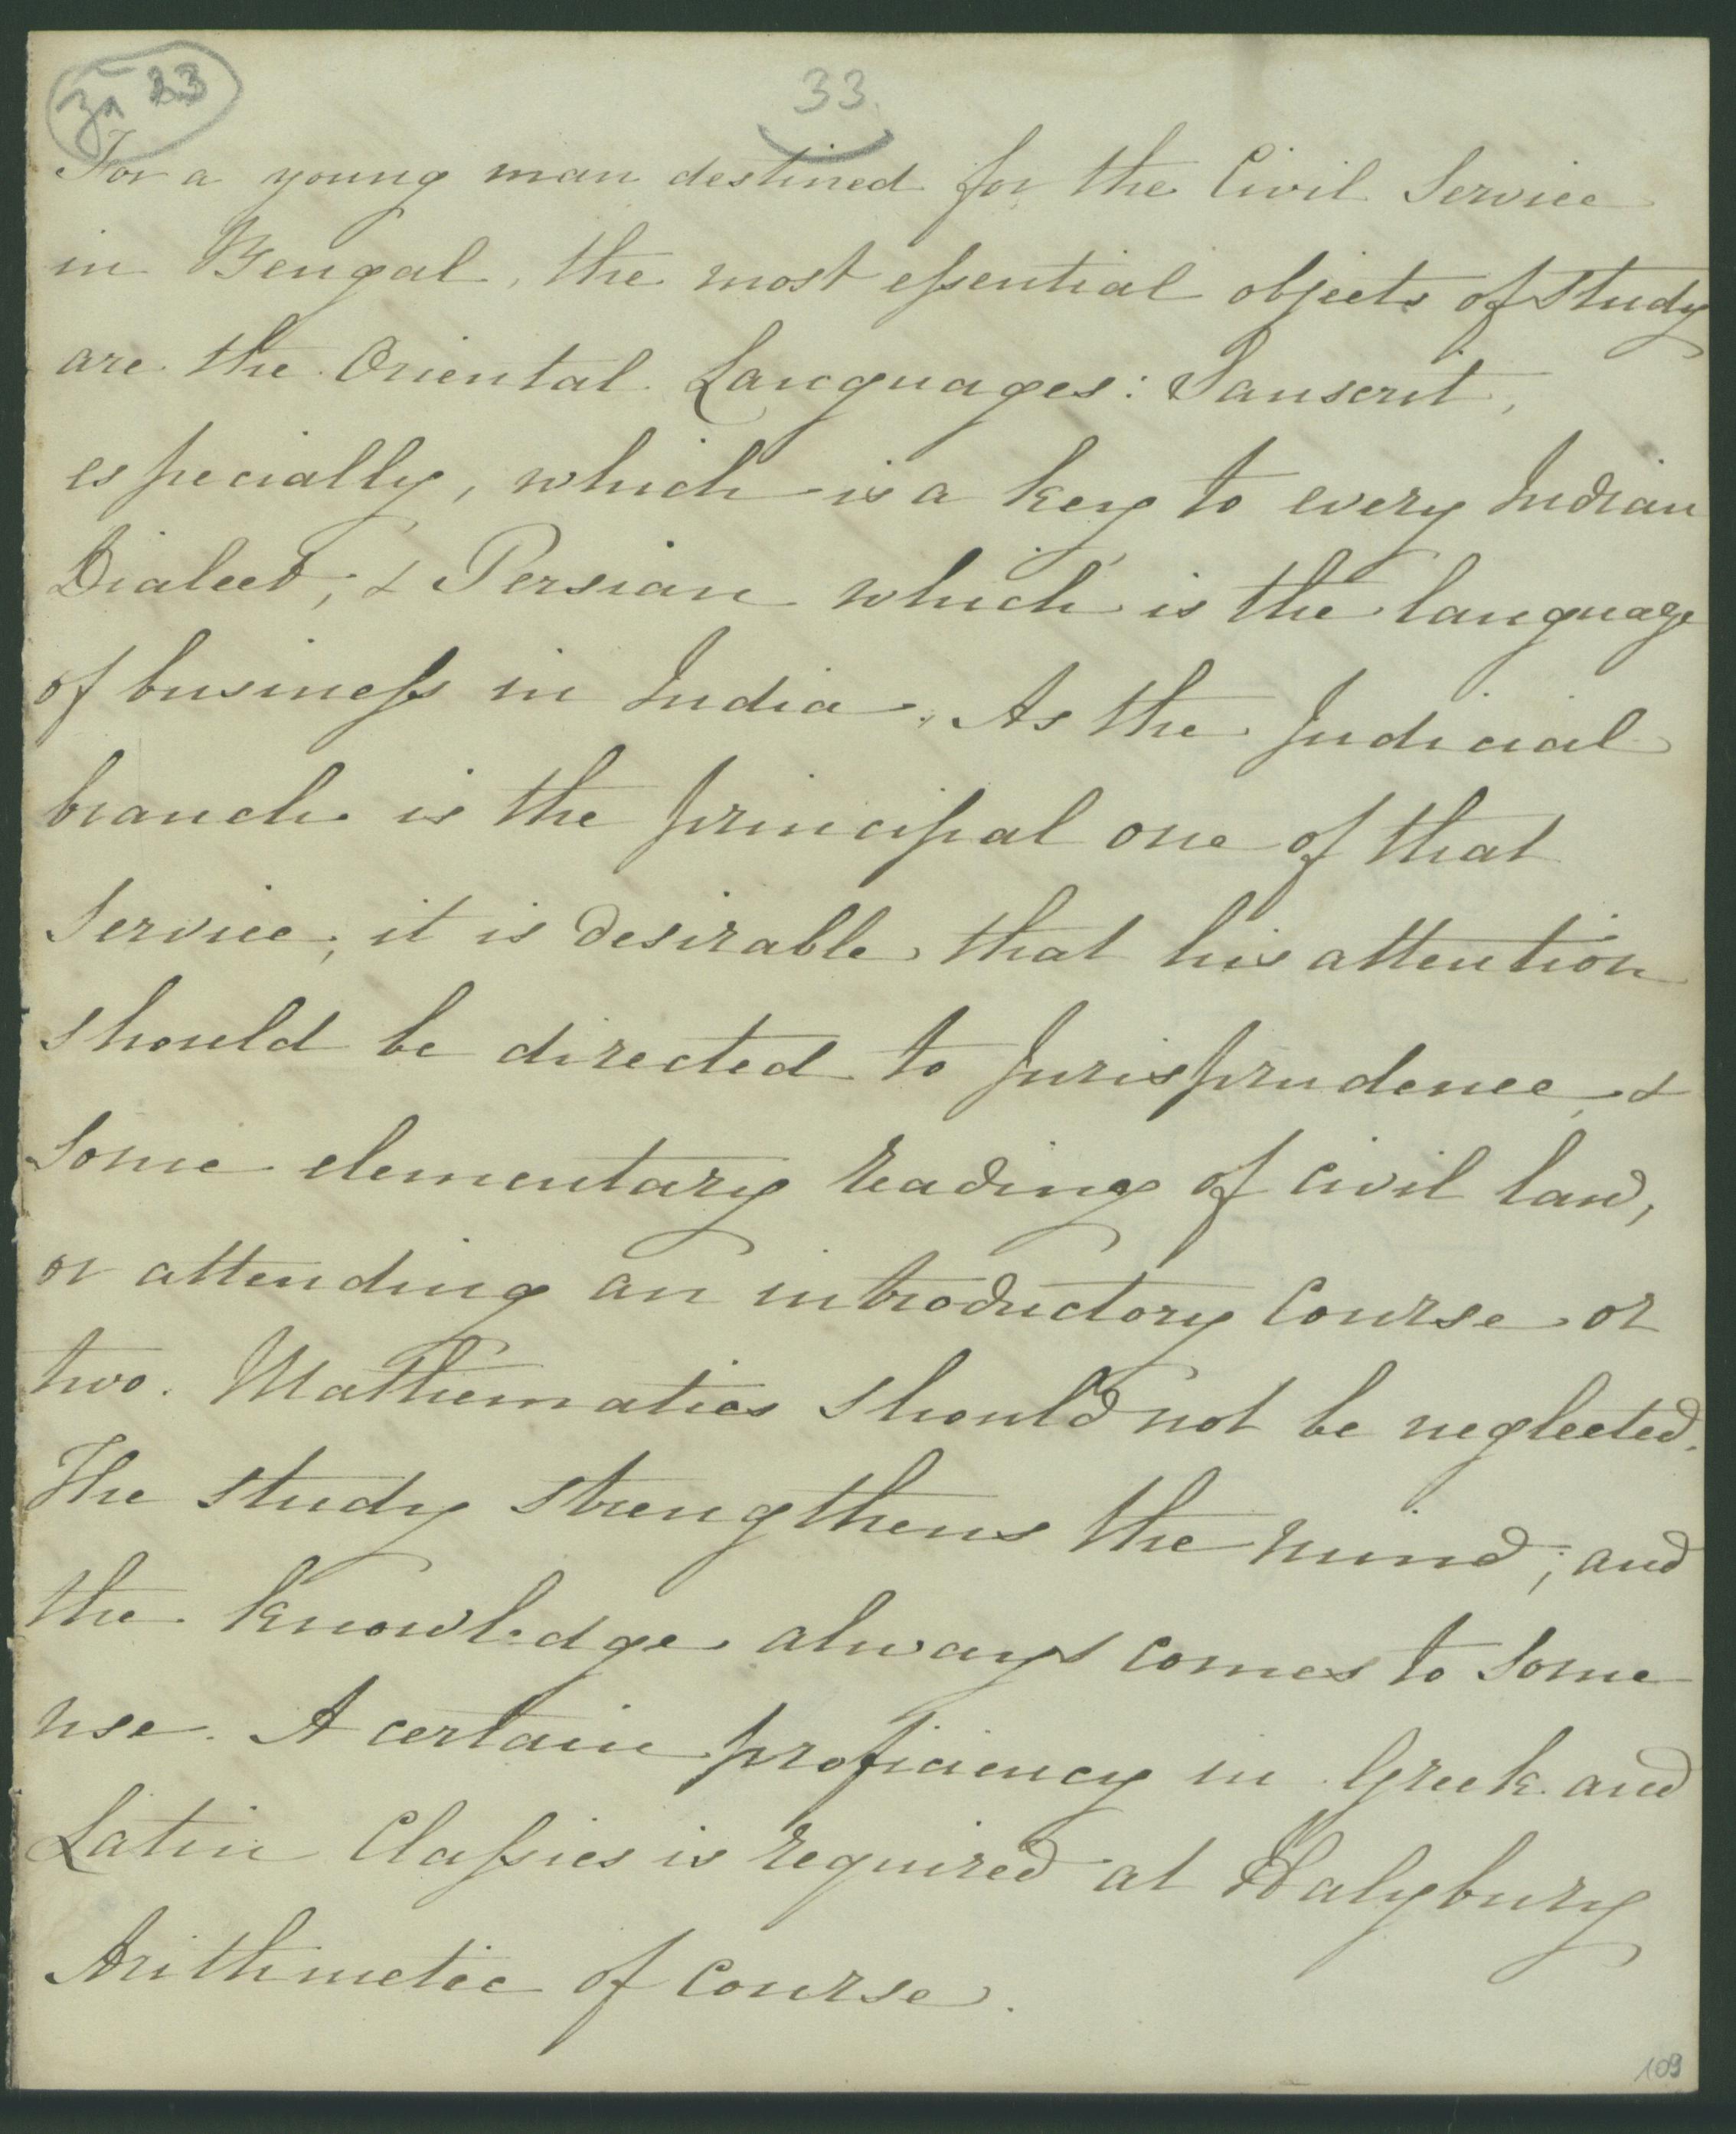 zu 23
33
For a young man destined for the Civil Service
in Bengal, the most essential objects of study
are the Oriental Languages: Sanscrit,
especially, which is a key to every Indian
Dialect; & Persian which is the language
of business in India. As the Judicial
branch is the principal one of that
Service; it is desirable that his attention
should be directed to Jurisprudence, &
some elementary reading of civil law,
or attending an introductory course or
two. Mathematics should not be neglected.
The study strengthens the mind; and
the knowledge always comes to some
use. A certain proficiency in Greek and
Latin Classics is required at Halybury
Arithmetic of course.
109